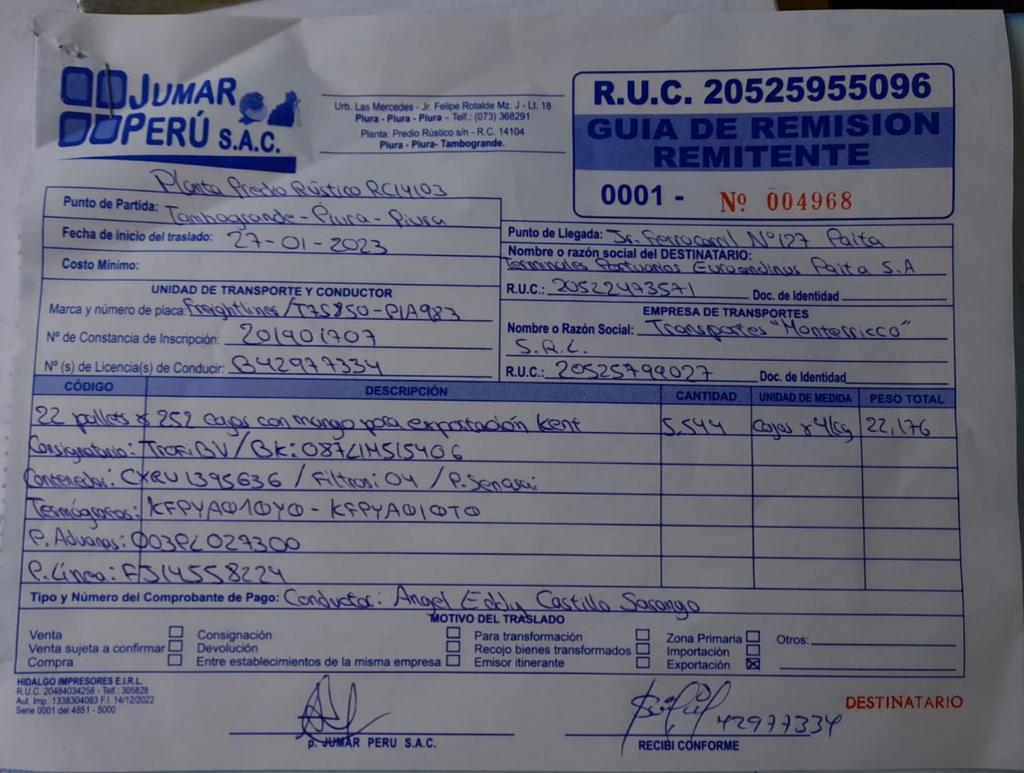 JUMAR
PERÚ S.A.C.
Urb. Las Mercedes - Jr. Felipe Rotalde Mz. J - Lt. 18
Piura - Piura - Piura - Telf.: (073) 368291
Planta: Predio Rústico s/n - R.C. 14104
Piura - Piura- Tambogrande.
R.U.C. 20525955096
GUIA DE REMISION
REMITENTE
0001 - Nº 004968
Planta Predio Rústico RC14103
Punto de Partida: Tambogrande - Piura - Piura
Fecha de inicio del traslado: 27-01-2023
Costo Mínimo:
Punto de Llegada: Jr. Ferrocarril Nº127 Paita
Nombre o razón social del DESTINATARIO:
Terminales Portuarios Euroandinos Paita S.A
R.U.C.: 20522473571 Doc. de Identidad
UNIDAD DE TRANSPORTE Y CONDUCTOR
Marca y número de placa: Freightliner/T7S850-P1A983
Nº de Constancia de Inscripción: 201901707
Nº (s) de Licencia(s) de Conducir: B42977334
EMPRESA DE TRANSPORTES
Nombre o Razón Social: Transportes "Monterricco"
S.R.L.
R.U.C.: 20525799027 Doc. de Identidad
CÓDIGO DESCRIPCIÓN CANTIDAD UNIDAD DE MEDIDA PESO TOTAL
22 pallets x 252 cajas con mango para exportación Kent 5,544 cajas x 4kg 22,176
Consignatario: Trofi BV / BK: 087LIM515406
Contenedor: CXRU 1395636 / Filtros: 04 / P. Senasa:
Termógrafos: KFPYA010Y0 - KFPYA010T0
P. Aduanas: 003PL027300
P. Línea: FJ14558224
Tipo y Número del Comprobante de Pago: Conductor: Angel Eddy Castillo Sarango
MOTIVO DEL TRASLADO
Venta
Venta sujeta a confirmar
Compra
Consignación
Devolución
Entre establecimientos de la misma empresa
Para transformación
Recojo bienes transformados
Emisor itinerante
Zona Primaria
Importación
Exportación
Otros:
HIDALGO IMPRESORES E.I.R.L.
R.U.C. 20484034256 - Telf.: 305828
Aut. Imp. 1338304083 F.I. 14/12/2022
Serie 0001 del 4851 - 5000
p. JUMAR PERU S.A.C.
42977334
RECIBI CONFORME
DESTINATARIO